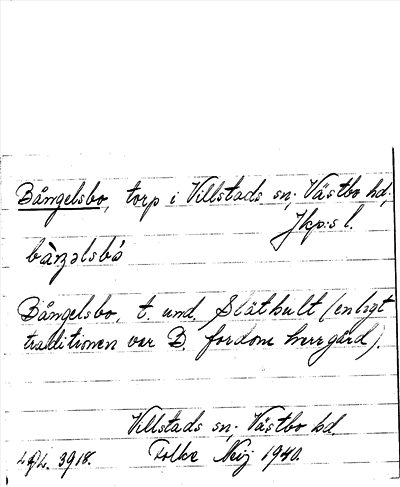 Bångelsbo, torp i Villstads sn, Västbo hd,
Jkp:s l.
bàŋəlsbó
Bångelsbo, t. und. Släthult (enligt
traditionen var B. fordom herrgård).
Villstads sn. Västbo hd.
3918. Folke 1940.